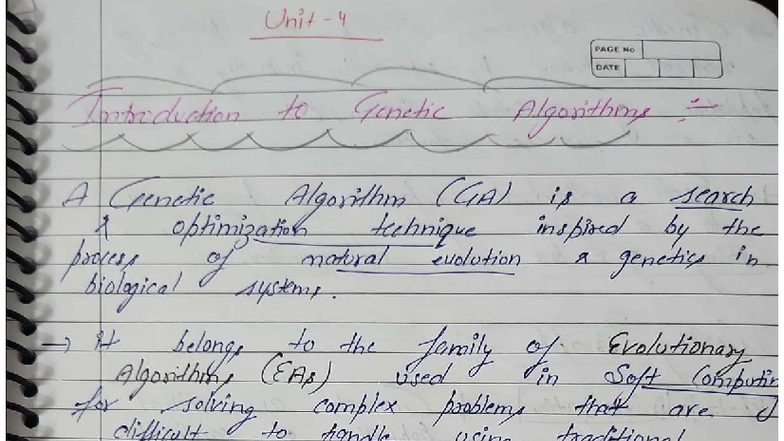 Unit - 4
PAGE No
DATE
Introduction to Genetic Algorithms :-
A Genetic Algorithm (GA) is a search
& optimization technique inspired by the
process of natural evolution & genetics in
biological systems.
→ it belongs to the family of Evolutionary
Algorithms (EAs) used in Soft Computin
for solving complex problems that are
difficult to handle using traditional